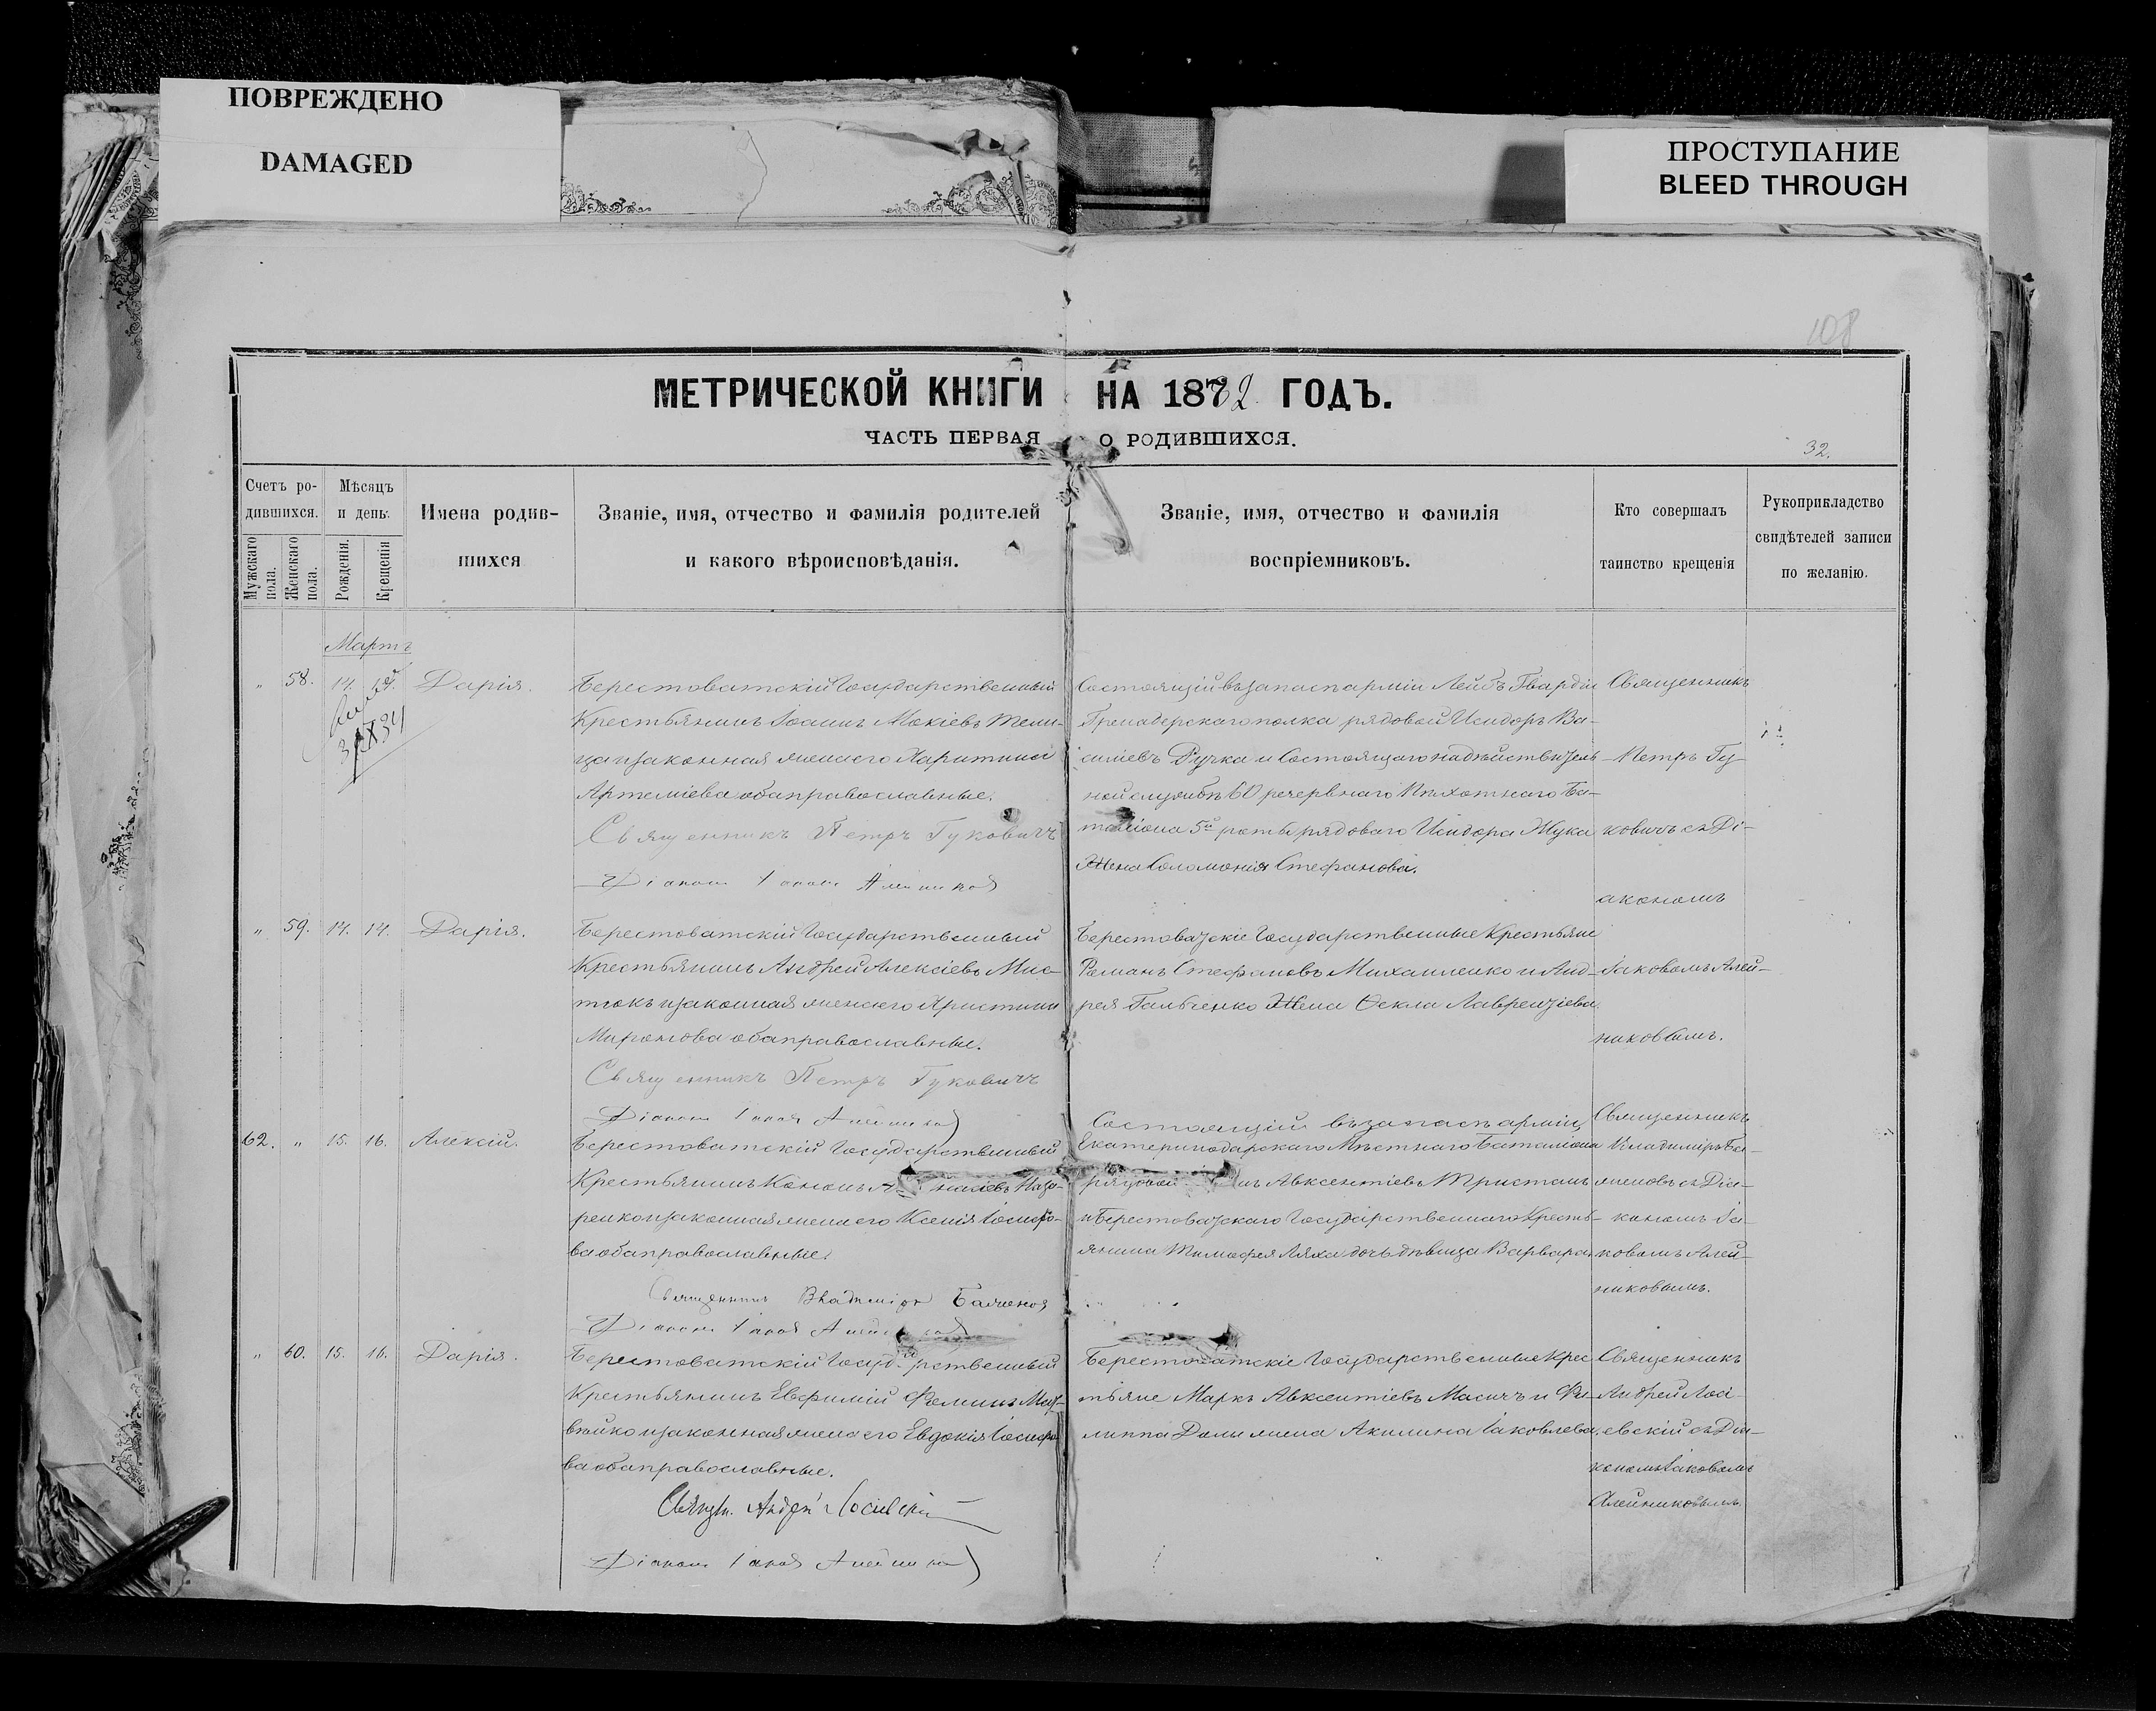 ПОВРЕЖДЕНО
DAMAGED
ПРОСТУПАНИЕ
BLEED THROUGH
108
МЕТРИЧЕСКОЙ КНИГИ НА 1882 ГОДЪ.
ЧАСТЬ ПЕРВАЯ О РОДИВШИХСЯ.
32.
Счетъ ро-
дившихся.
Мужскаго пола.
Женскаго пола.
Мѣсяцъ
и день.
Рожденія.
Крещенія
Имена родив-
шихся
Званіе, имя, отчество и фамилія родителей
и какого вѣроисповѣданія.
Званіе, имя, отчество и фамилія
воспріемниковъ.
Кто совершалъ
таинство крещенія
Рукоприкладство
свидѣтелей записи
по желанію.
Мартъ
" 58. 14. 14. Дарія.
Берестоватскій Государственный
Крестьянинъ Іоаннъ Мокіевъ Тели-
ца и законная жена его Харитина
Артеміева оба православные.
Священникъ Петръ Гуковичъ
Діаконъ Іаковъ Алейниковъ
Состоящій въ запасѣ арміи Лейбъ Гвардіи
Гренадерскаго полка рядовой Исидоръ Ва-
силіевъ Ручка и Состоящаго на дѣйствитель-
ной службѣ 60 резервнаго Пѣхотнаго Ба-
таліона 5й роты рядоваго Исидора Жука
Жена Соломонія Стефанова.
Священникъ
Петръ Гу-
ковичъ съ Ді-
акономъ
" 59. 14. 14. Дарія.
Берестоватскій Государственный
Крестьянинъ Андрей Алексіевъ Мис-
тюкъ и законная жена его Христина
Миронова оба православные.
Священникъ Петръ Гуковичъ
Діаконъ Іаковъ Алейниковъ
Берестоватскіе Государственные Крестьяне
Романъ Стефановъ Михайленко и Анд-
рея Гальченко Жена Ѳекла Лаврентіева.
Іаковомъ Алей-
никовымъ.
62. " 15. 16. Алексій.
Берестоватскій Государственный
Крестьянинъ Кононъ Назо-
ренко и законная жена его Ксенія Іосифо-
ва оба православные.
Священникъ Владиміръ Баженовъ
Діаконъ Іаковъ Алейниковъ
Состоящій въ запасѣ арміи,
Екатеринодарскаго Мѣстнаго Баталіона
рядовой Авксентіевъ Тристанъ
и Берестоватскаго Государственнаго Кресть-
янина Тимофея Ляха дочь дѣвица Варвара.
Священникъ
Владиміръ Ба-
женовъ съ Діа-
кономъ Іа-
ковомъ Алей-
никовымъ.
" 60. 15. 16. Дарія.
Берестоватскій Государственный
Крестьянинъ Евфимій Фоминъ Мат-
вѣйко и законная жена его Евдокія Іосифо-
ва оба православные.
Священ. Андрей Лосіевскій
Діаконъ Іаковъ Алейниковъ
Берестоватскіе Государственные Крес-
тьяне Маркъ Авксентіевъ Масичъ и Фи-
липпа Доли жена Акилина Іаковлева.
Священникъ
Андрей Лосі-
евскій съ Діа-
кономъ Іаковомъ
Алейниковымъ.